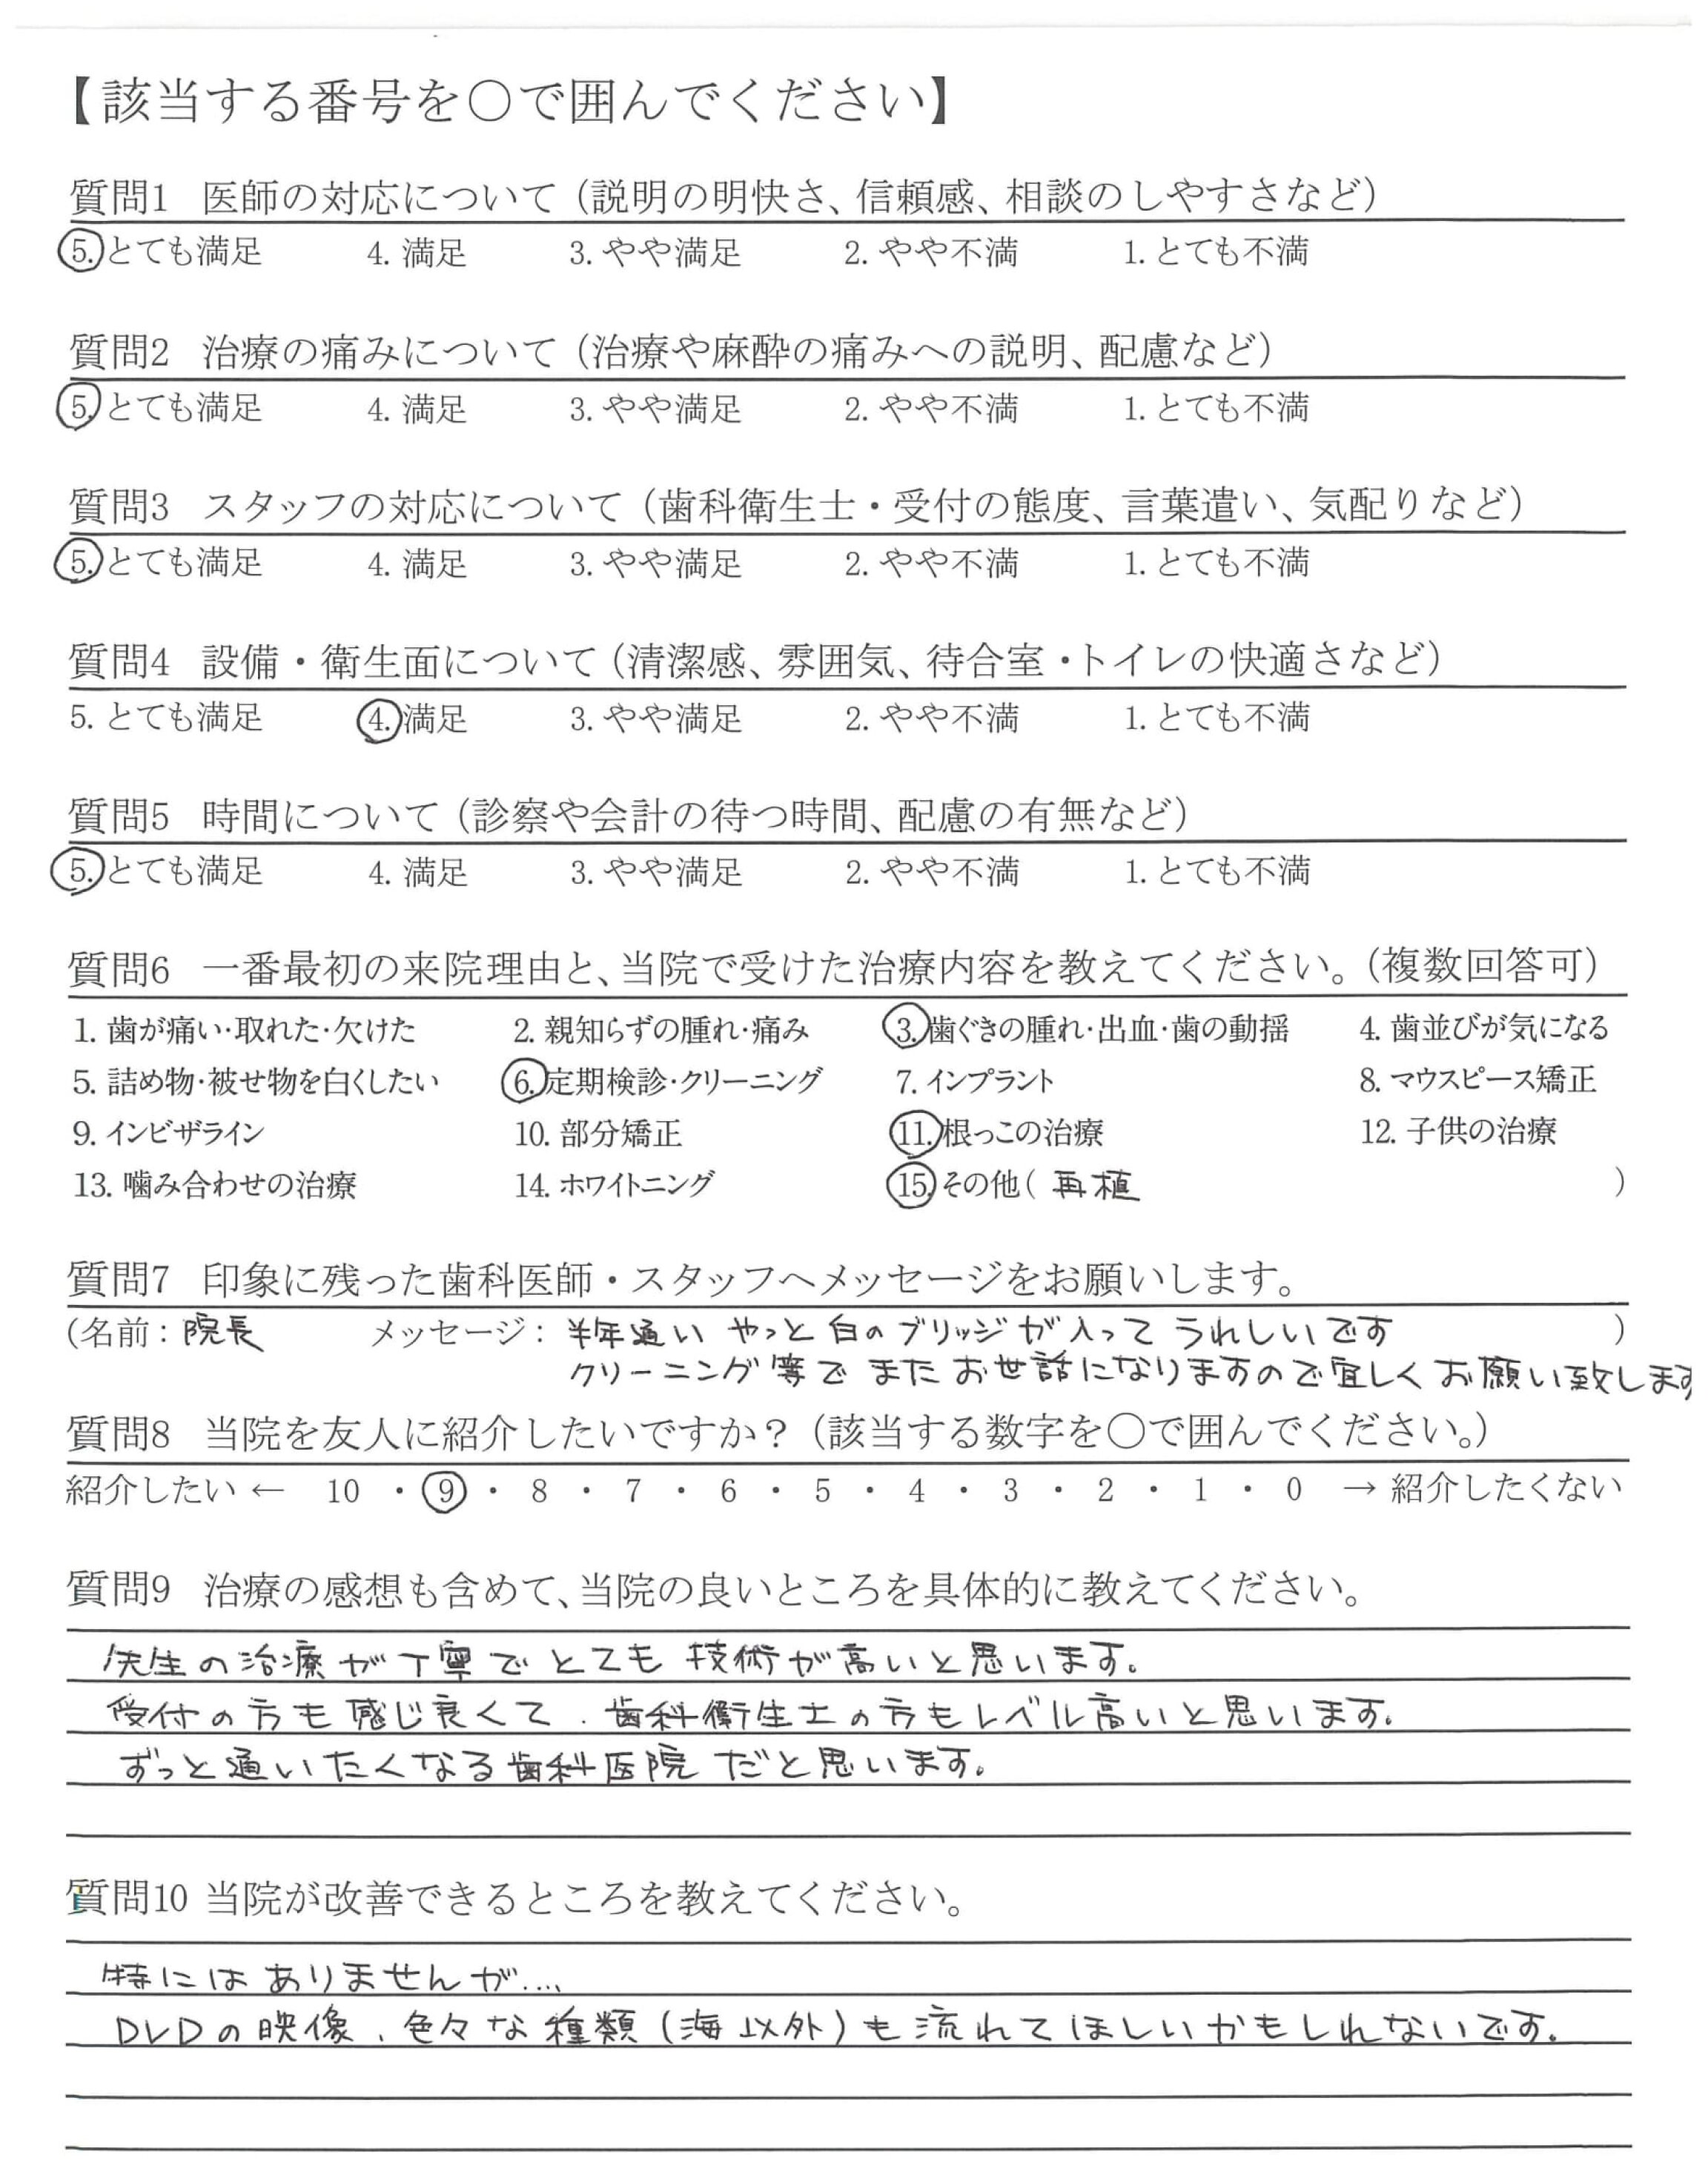 【該当する番号を〇で囲んでください】
質問1 医師の対応について（説明の明快さ、信頼感、相談のしやすさなど）
5. とても満足 4. 満足 3. やや満足 2. やや不満 1. とても不満
質問2 治療の痛みについて（治療や麻酔の痛みへの説明、配慮など）
5. とても満足 4. 満足 3. やや満足 2. やや不満 1. とても不満
質問3 スタッフの対応について（歯科衛生士・受付の態度、言葉遣い、気配りなど）
5. とても満足 4. 満足 3. やや満足 2. やや不満 1. とても不満
質問4 設備・衛生面について（清潔感、雰囲気、待合室・トイレの快適さなど）
5. とても満足 4. 満足 3. やや満足 2. やや不満 1. とても不満
質問5 時間について（診察や会計の待つ時間、配慮の有無など）
5. とても満足 4. 満足 3. やや満足 2. やや不満 1. とても不満
質問6 一番最初の来院理由と、当院で受けた治療内容を教えてください。（複数回答可）
1. 歯が痛い・取れた・欠けた 2. 親知らずの腫れ・痛み 3. 歯ぐきの腫れ・出血・歯の動揺 4. 歯並びが気になる
5. 詰め物・被せ物を白くしたい 6. 定期検診・クリーニング 7. インプラント 8. マウスピース矯正
9. インビザライン 10. 部分矯正 11. 根っこの治療 12. 子供の治療
13. 噛み合わせの治療 14. ホワイトニング 15. その他（再植）
質問7 印象に残った歯科医師・スタッフへメッセージをお願いします。
（名前：院長 メッセージ：半年通い やっと白のブリッジが入ってうれしいです）
クリーニング等でまたお世話になりますので宜しくお願い致します
質問8 当院を友人に紹介したいですか？（該当する数字を〇で囲んでください。）
紹介したい ← 10 ・ 9 ・ 8 ・ 7 ・ 6 ・ 5 ・ 4 ・ 3 ・ 2 ・ 1 ・ 0 → 紹介したくない
質問9 治療の感想も含めて、当院の良いところを具体的に教えてください。
先生の治療が丁寧でとても技術が高いと思います。
受付の方も感じ良くて、歯科衛生士の方もレベル高いと思います。
ずっと通いたくなる歯科医院だと思います。
質問10 当院が改善できるところを教えてください。
特にはありませんが....
DVDの映像、色々な種類（海以外）も流れてほしいかもしれないです。